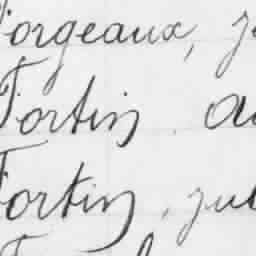 Forgeaux, j
Fortin, au
Fortin, jul